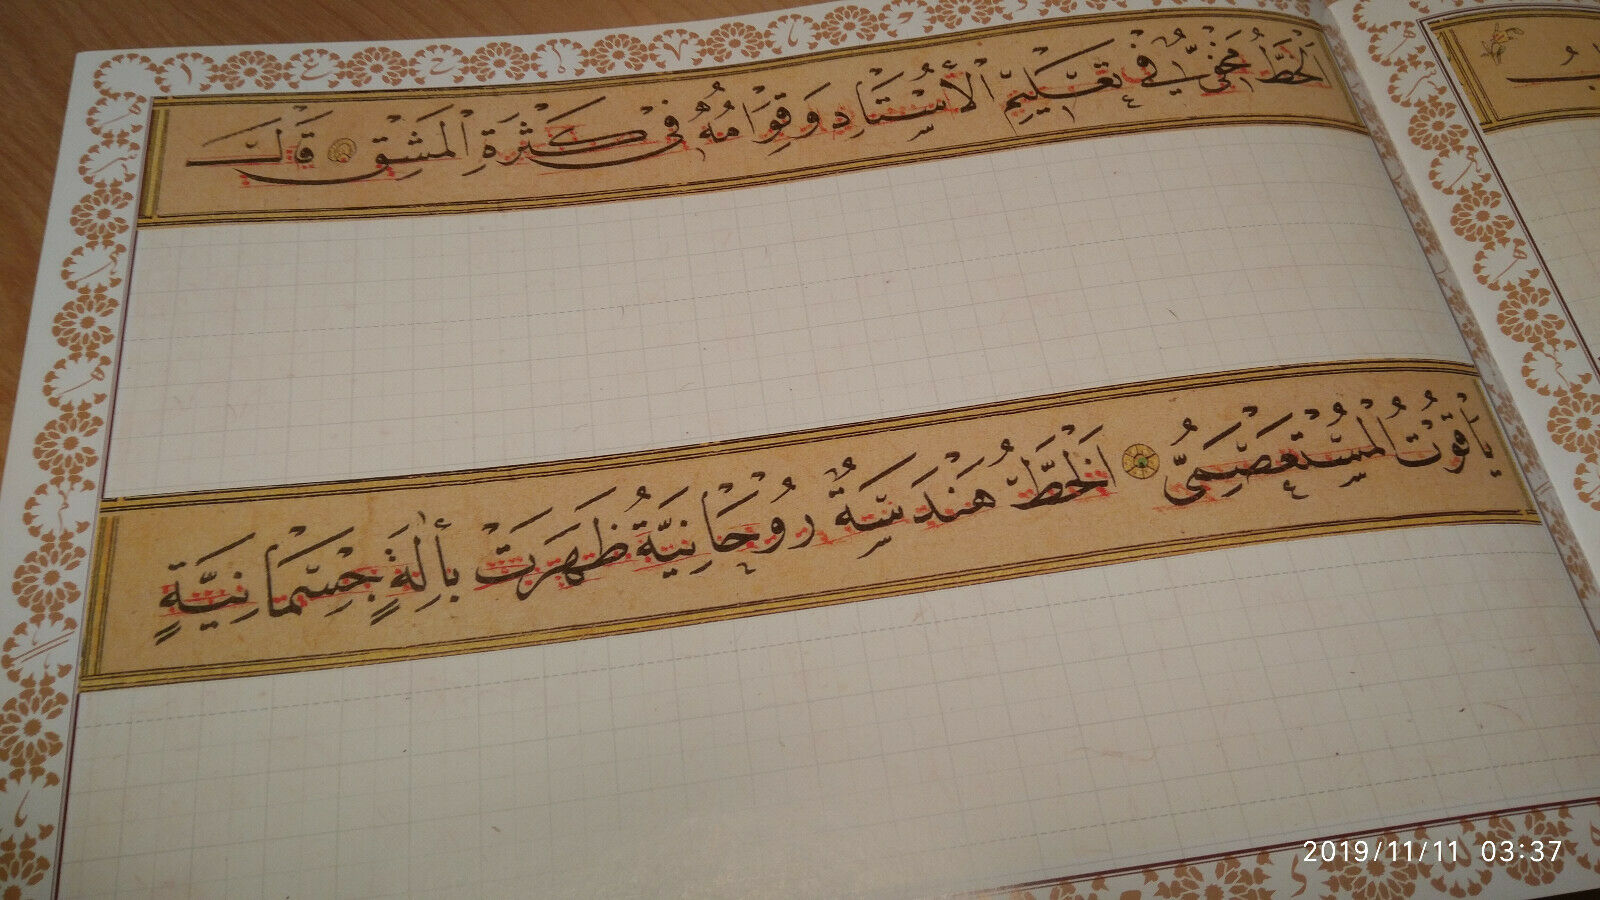 اَلْخَطُّ مَخْفِيٌّ فِي تَعْلِيمِ الْأُسْتَادِ وَقِوَامُهُ فِي كَثْرَةِ الْمَشْقِ قَالَ
يَاقُوتُ الْمُسْتَعْصِمِيُّ اَلْخَطُّ هَنْدَسَةٌ رُوحَانِيَّةٌ ظَهَرَتْ بِأٰلَةٍ جِسْمَانِيَّةٍ
2019/11/11 03:37